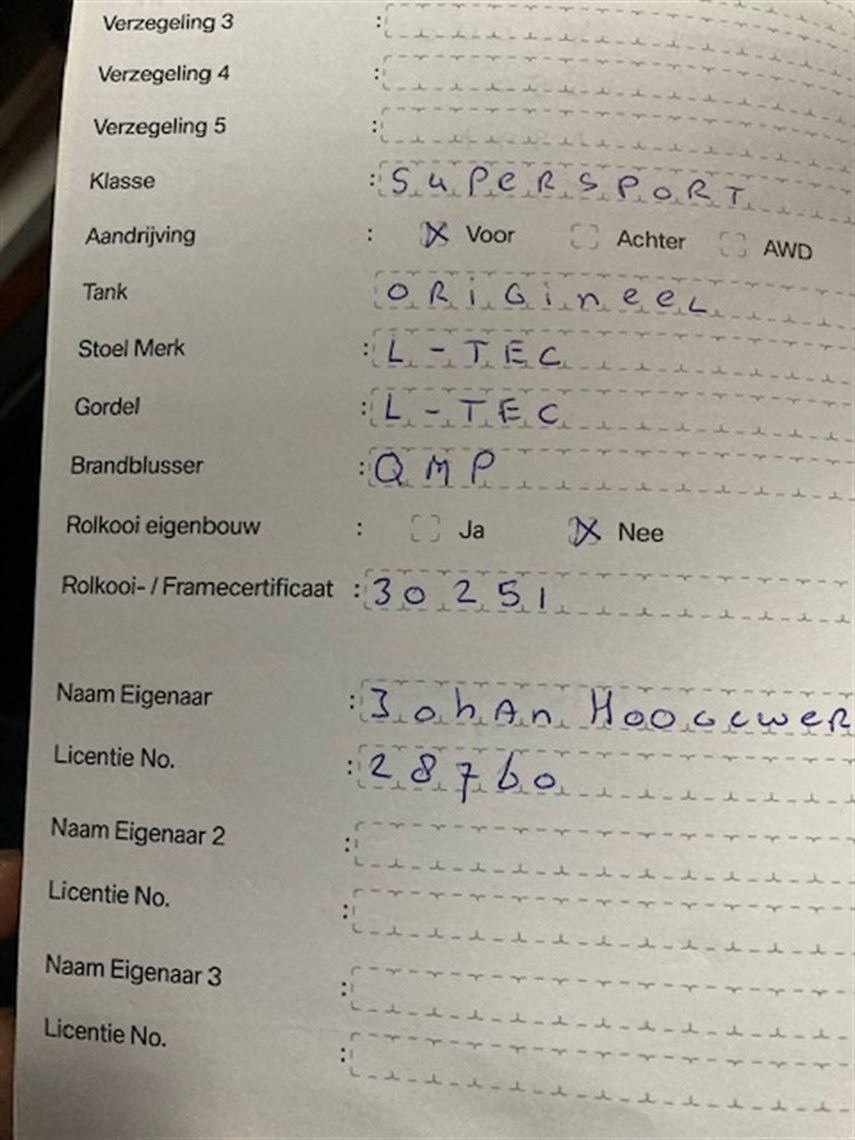 Verzegeling 3 :
Verzegeling 4 :
Verzegeling 5 :
Klasse : SuPeRSPoRT
Aandrijving : X Voor Achter AWD
Tank oRiGineeL
Stoel Merk : L-TEC
Gordel : L-TEC
Brandblusser : QMP
Rolkooi eigenbouw : Ja X Nee
Rolkooi- / Framecertificaat : 30251
Naam Eigenaar : JohAn
Licentie No. : 28760
Naam Eigenaar 2 :
Licentie No. :
Naam Eigenaar 3 :
Licentie No. :